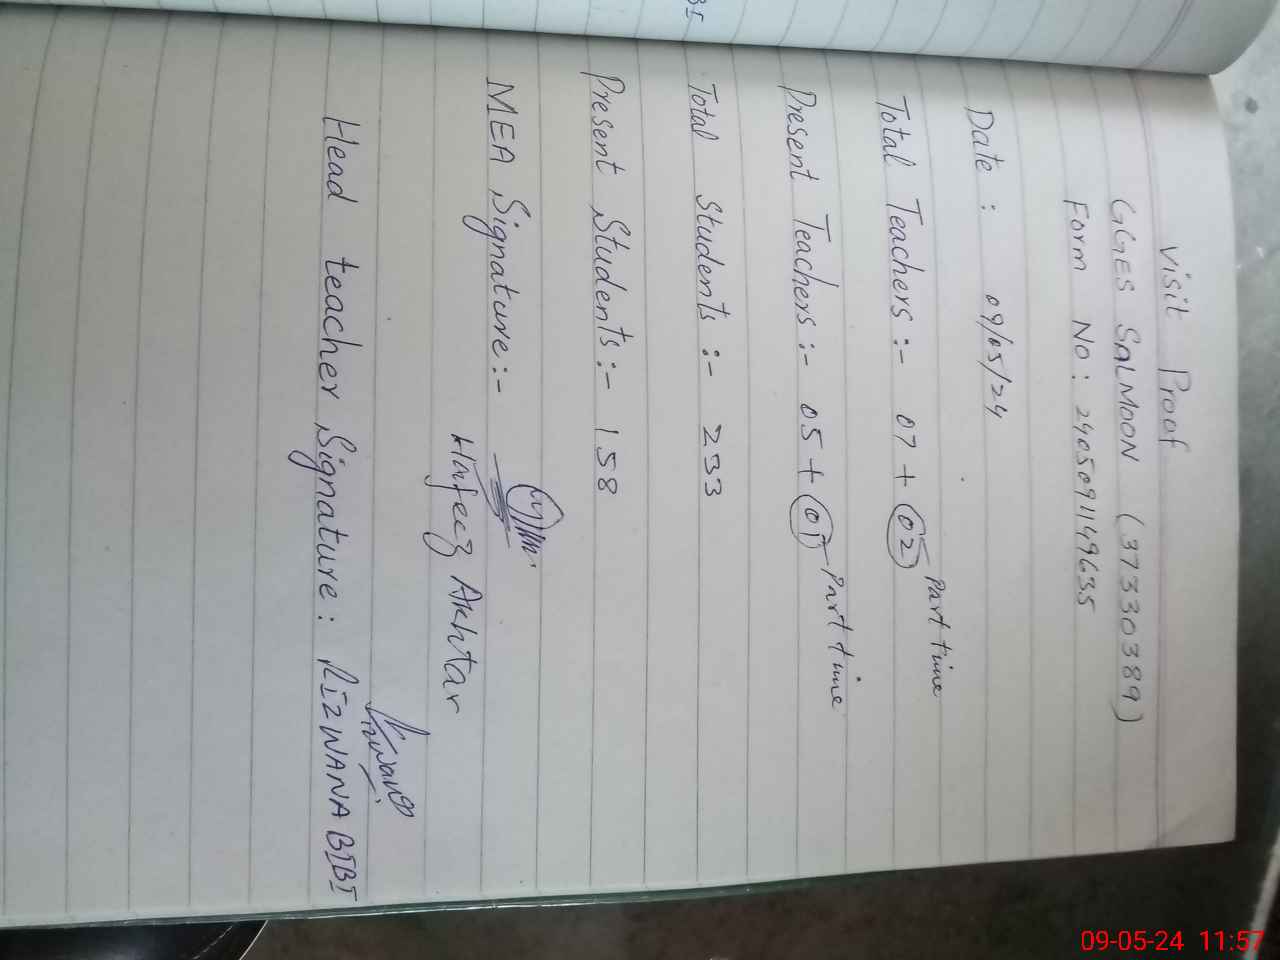 Visit Proof
GGES SALMOON (37330389)
Form No: 240509149635
Date: 09/05/24
Total Teachers :- 07 + 02 Part time
Present Teachers :- 05 + 01 Part time
Total Students :- 233
Present Students :- 158
MEA Signature :-
Hafeez Akhtar
Head teacher Signature : RIZWANA BIBI
09-05-24 11:57